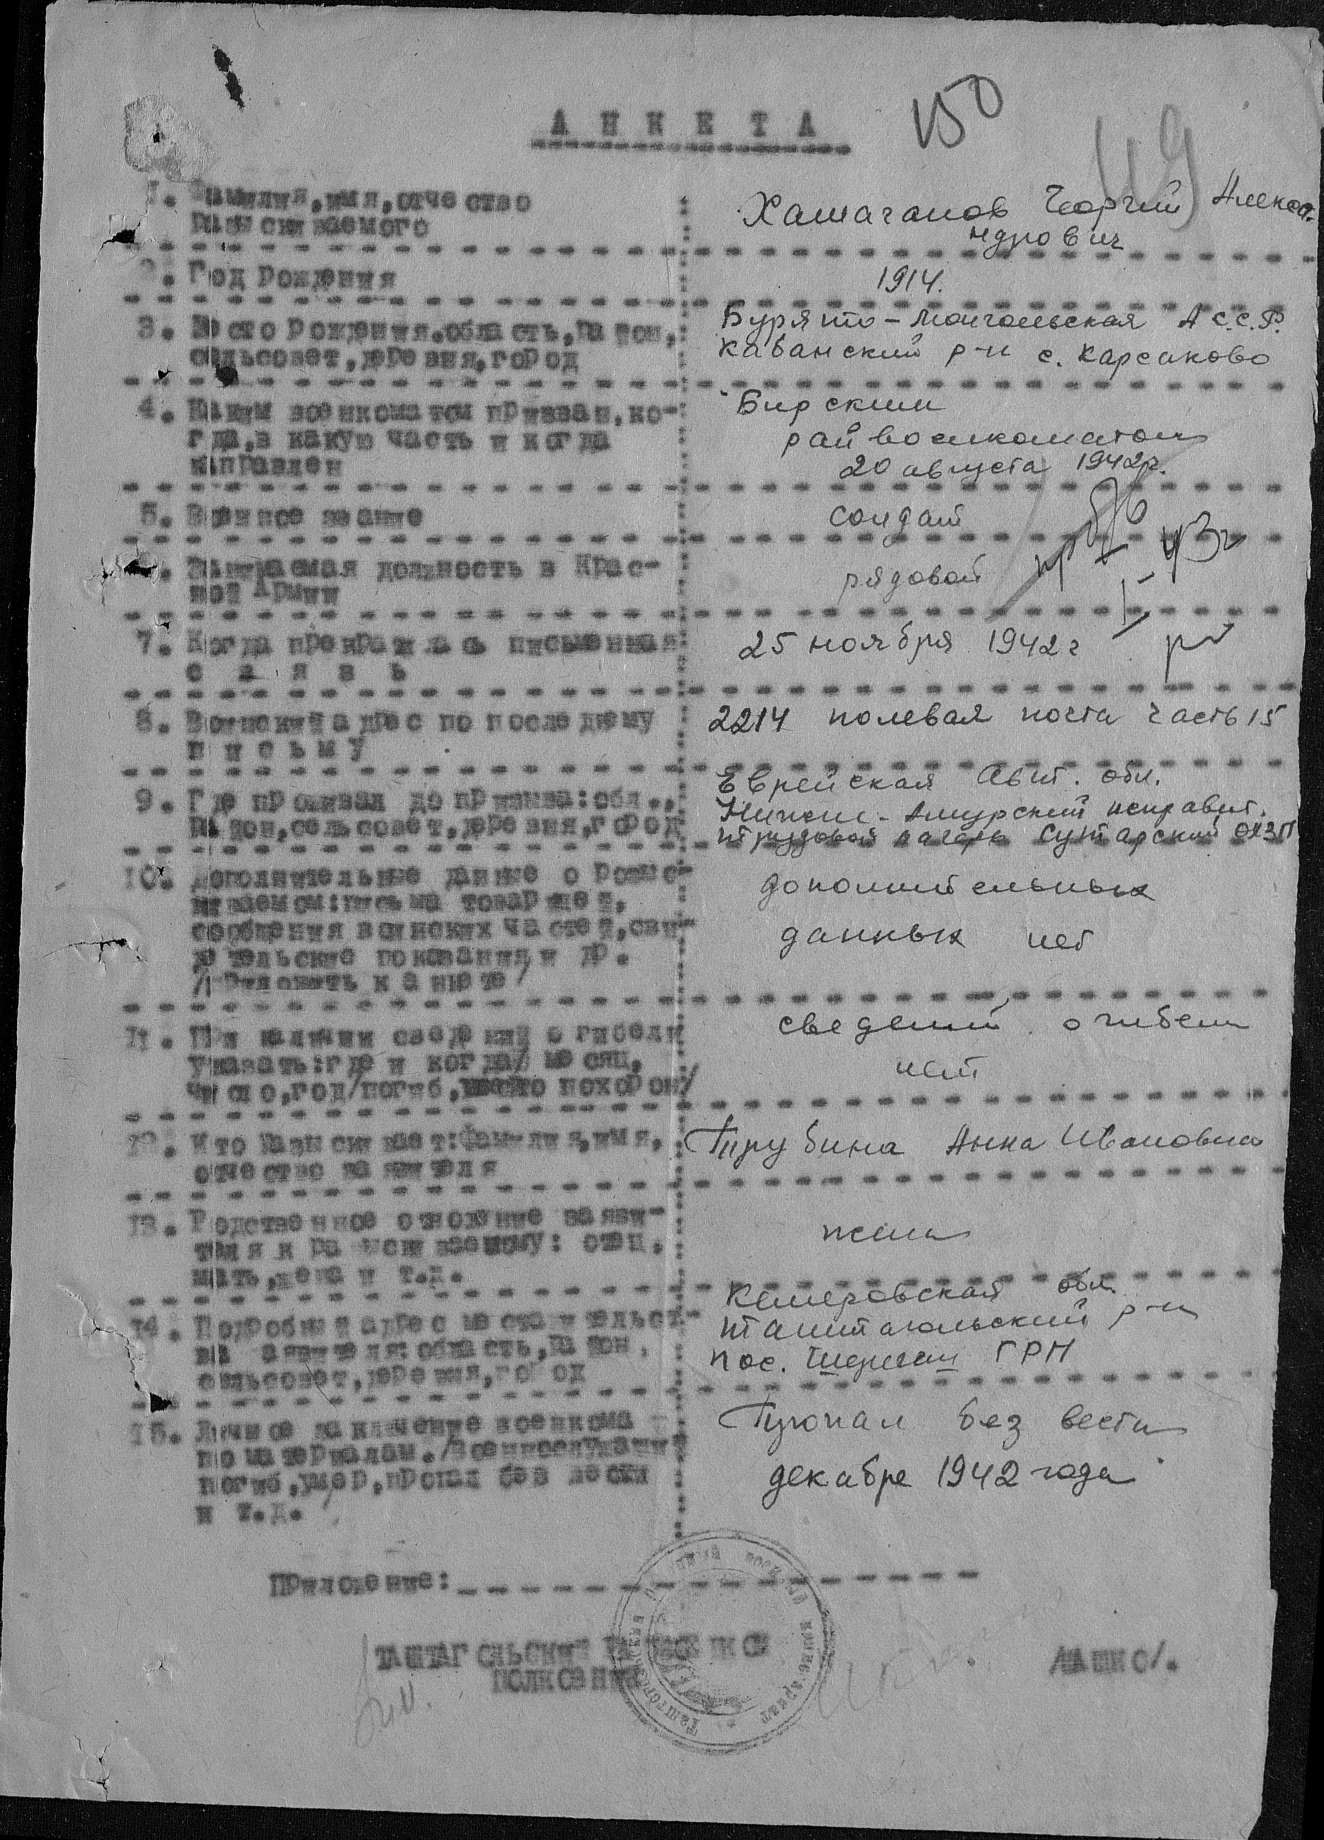 150
119
АНКЕТА
1. Фамилия, имя, отчество
разыскиваемого
Хашаганов Георгий Алекса
ндрович
2. Год рождения
1914.
3. Место рождения, область, район,
сельсовет, деревня, город
Бурято-Монгольская АССР.
Кабанский р-н с. Карсаково
4. Каким военкоматом призван, ко-
гда, в какую часть и когда
направлен
Бирским
райвоенкоматом
20 августа 1942г.
5. Военное звание
солдат
6. Занимаемая должность в Крас-
ной Армии
рядовой
7. Когда прекратилась письменная
связь
25 ноября 1942 г
8. Воинский адрес по последнему
письму
2214 полевая почта часть 15
9. Где проживал до призыва: обл.,
район, сельсовет, деревня, город
Еврейская Авт. обл.
Нижне-Амурский исправит.
трудовой лагерь Сутарский ОЛЗП
10. Дополнительные данные о розыс-
киваемом: письма товарищей,
сообщения воинских частей, сви-
детельские показания и др.
/приложить к анкете/
дополнительных
данных нет
11. При наличии сведений о гибели
указать: где и когда/месяц,
число, год/погиб, место похорон/
сведений о гибели
нет
12. Кто разыскивает: Фамилия, имя,
отчество заявителя
Трубина Анна Ивановна
13. Родственное отношение заяви-
теля к разыскиваемому: отец,
мать, жена и т.д.
жена
14. Подробный адрес местожительст-
ва заявителя: область, район,
сельсовет, деревня, город
Кемеровская обл.
Таштагольский р-н
пос. Шерегеш ГРП
15. Личное заключение военкома
по материалам./Военнослужащий
погиб, умер, пропал без вести
и т.д./
Пропал без вести
декабре 1942 года
Приложение:
ТАШТАГОЛЬСКИЙ РАЙВОЕНКОМ
ПОЛКОВНИК
/ЛАШКО/.